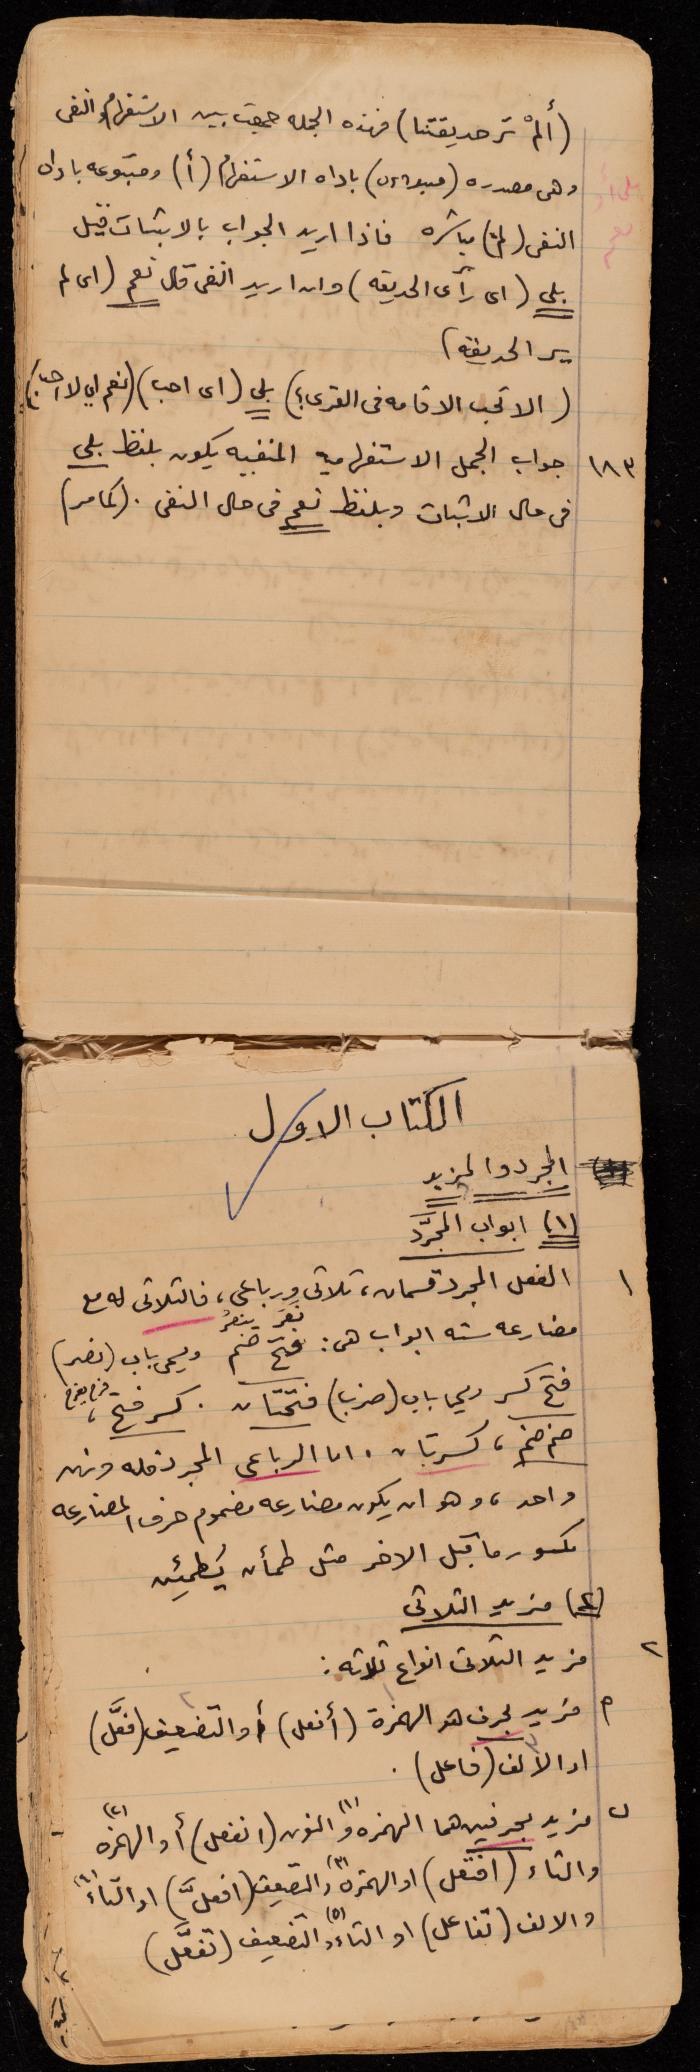 (ألمْ تر حديقتنا) فهذه الجمله جمعت بين الاستفهام والنفى
وهى مصدره (مبدوءه) باداه الاستفهام (أ) ومتبوعه باداه
النفى (لم) مباشره فاذا اريد الجواب بالاثبات قيل
بلى (اى رأى الحديقه) وان اريد النفى قال نعم (اى لم
ير الحديقه)
بلى أو
نعم
(الا تحب الاقامه فى القرى؟) بلى (اى احب) (نعم اي لا احب)
١٨٣ جواب الجمل الاستفهاميه المنفيه يكون بلفظ بلى
فى حال الاثبات وبلفظ نعم فى حال النفى . (كما مر)
الكتاب الاول
المجرد والمزيد
(١) ابواب المجرَّد
١ الفعل المجرد قسمان، ثلاثى ورباعى، فالثلاثى له مع
نَصَر ينصُر
مضارعه سته ابواب هى: فتح ضم ويسمى باب (نصر)
فتح كسر ويسمى باب (ضرب) فتحتان . كسر فتح،
فرح يفرح
ضم ضم، كسرتان . اما الرباعى المجرد فله وزن
واحد، وهو ان يكون مضارعه مضموم حرف المضارعه
مكسور ما قبل الاخر مثل طمأن يُطمئِن
(٢) مزيد الثلاثى
٢ مزيد الثلاثى انواع ثلاثه:
م مزيد بحرف هو الهمزة (أفعل) أو التضعيف (فعَّل)
او الألف (فاعل) .
ب مزيد بحرفين هما الهمزه (١) والنون (انفعل) أو الهمزه (٢)
والتاء (افتعل) او الهمزه (٣) والتضعيف (افعلَّ) او التاء (٤)
والالف (تفاعل) او التاء (٥) والتضعيف (تفعَّل)